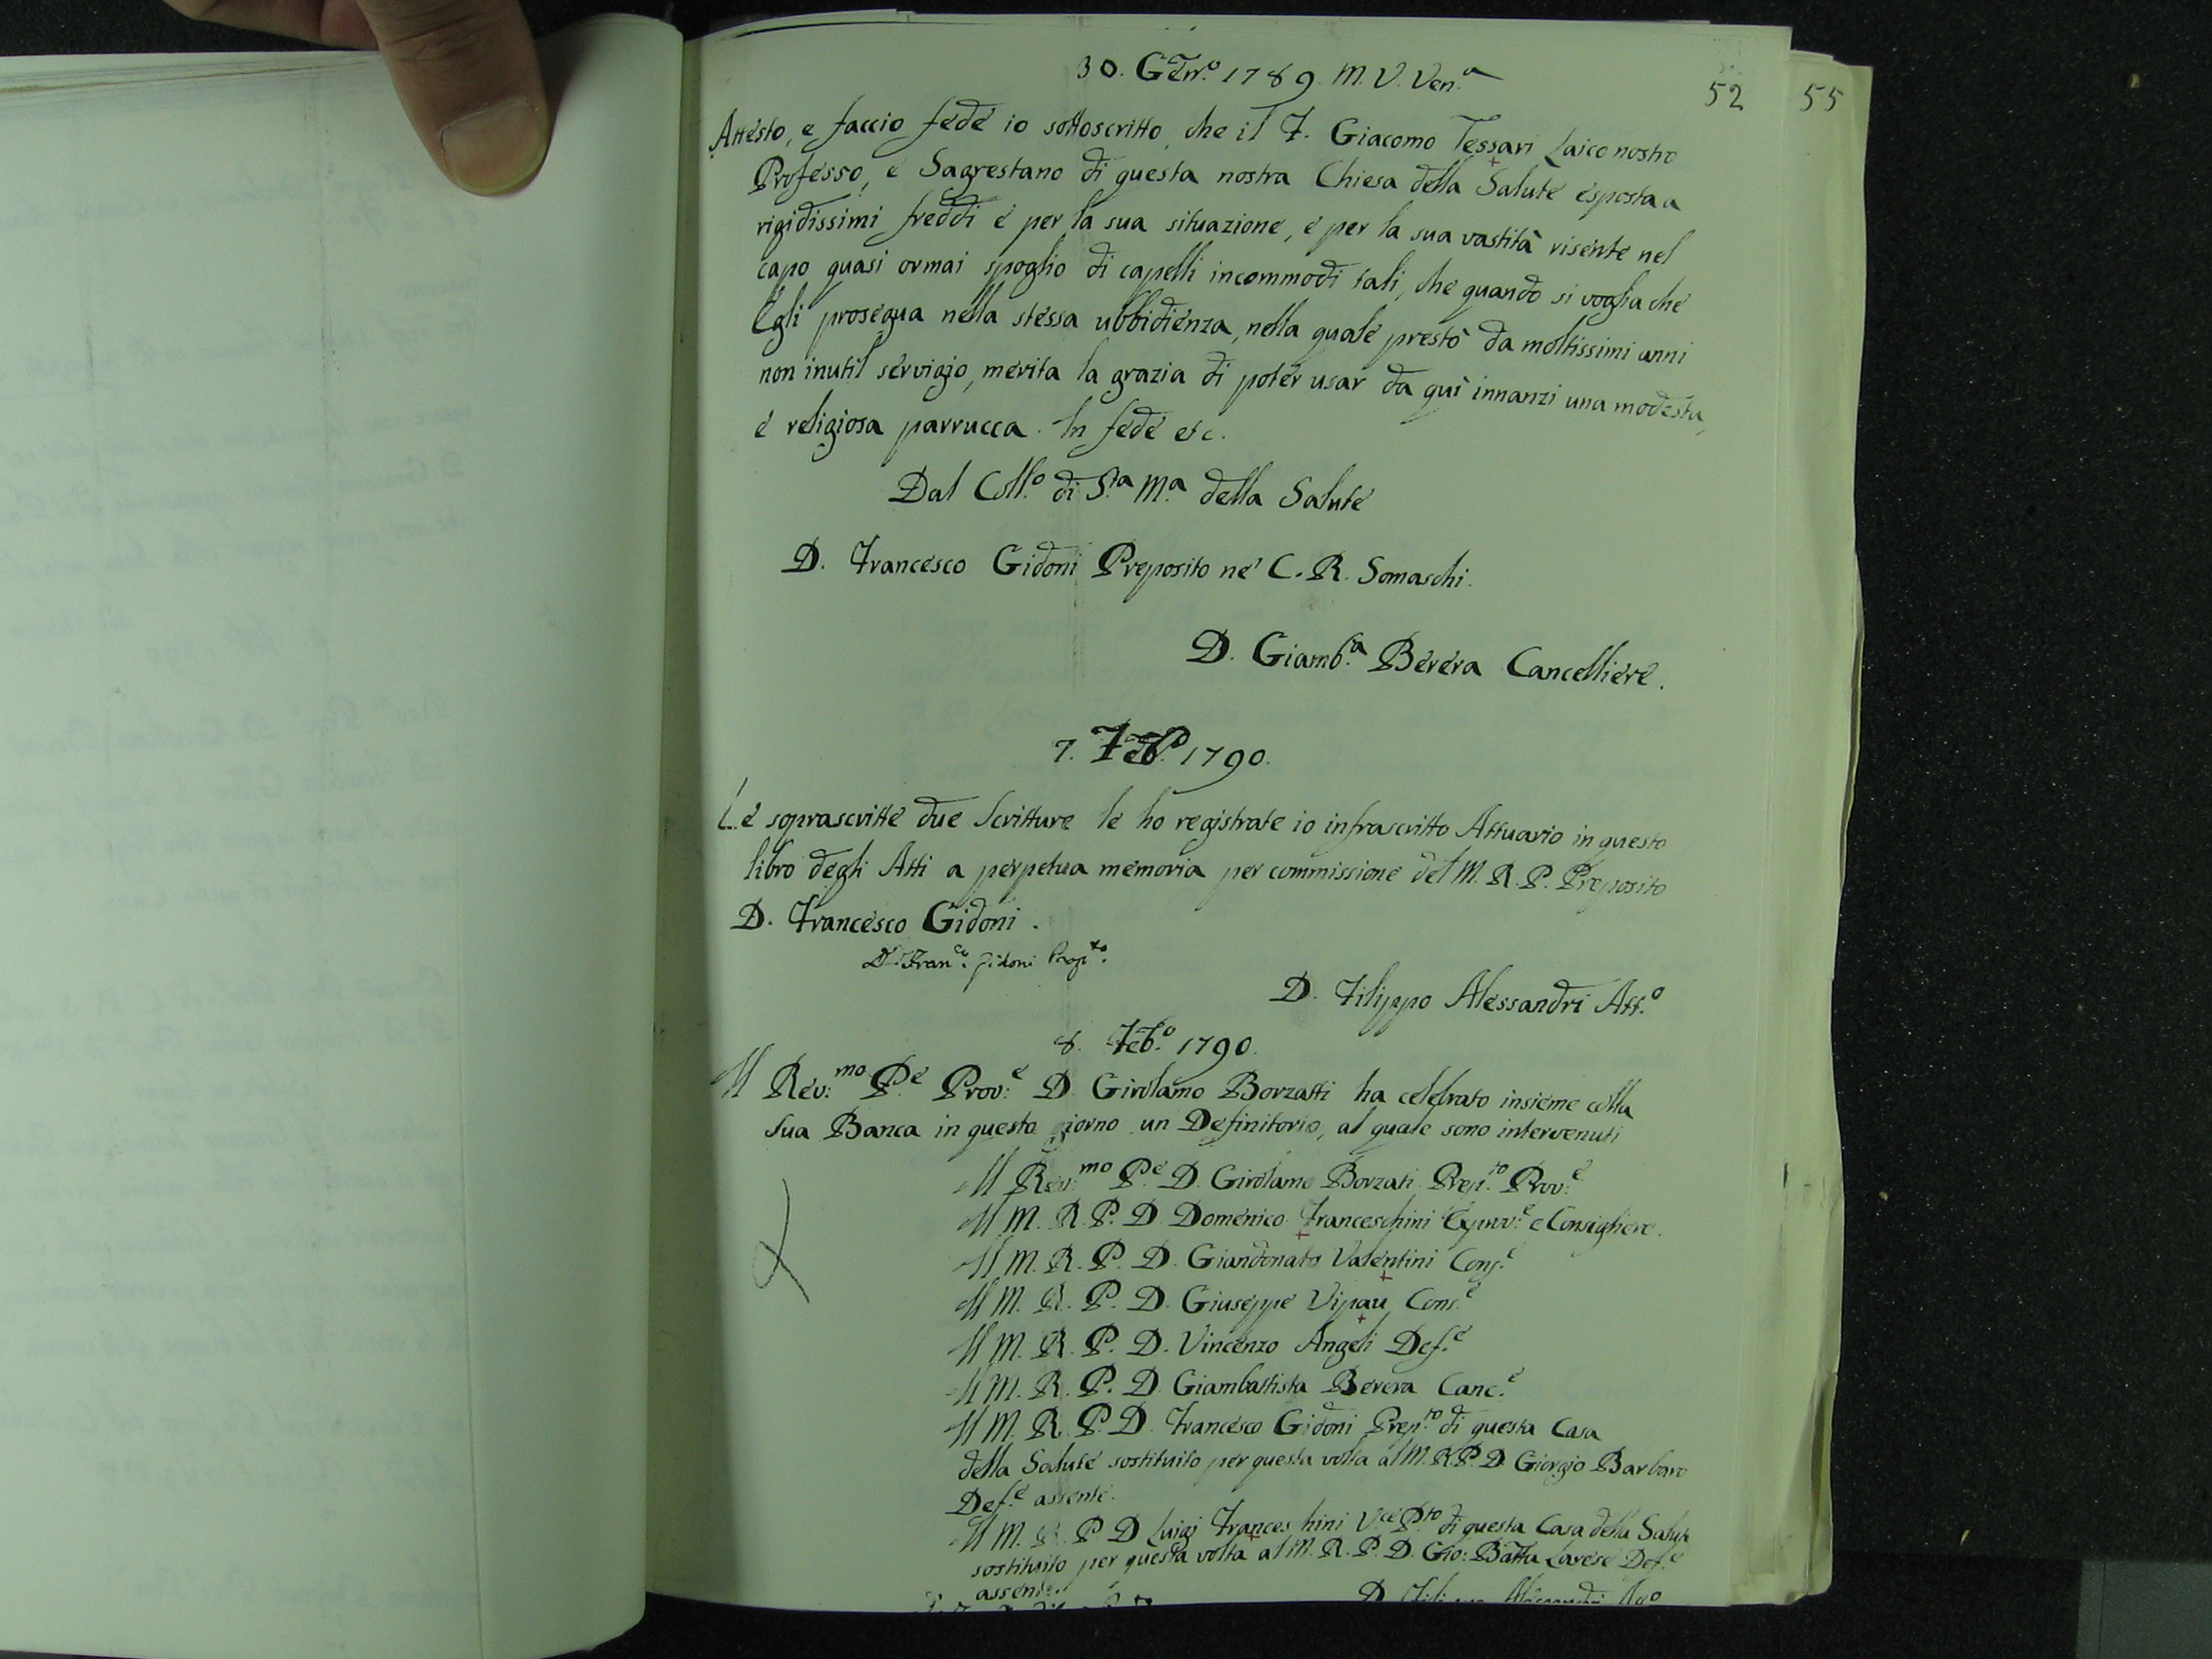 30. Genn.o 1789. M. V. Ven.a
52
55
Attesto, e faccio fede io sottoscritto, che il F. Giacomo Tessari Laico nostro
Professo, e Sagrestano di questa nostra Chiesa della Salute esposta a
rigidissimi freddi e per la sua situazione, e per la sua vastità risente nel
capo quasi ormai spoglio di capelli incommodi tali, che quando si voglia che
Egli prosegua nella stessa ubbidienza, nella quale prestò da moltissimi anni
non inutil servigio, merita la grazia di poter usar da qui innanzi una modesta,
e religiosa parrucca. In fede etc.
Dal Coll.o di S.ta M.a della Salute
D. Francesco Gidoni Preposito ne' C. R. Somaschi.
D. Giamb.a Berera Cancelliere.
7. Feb.o 1790.
Le soprascritte due Scritture le ho registrate io infrascritto Attuario in questo
libro degli Atti a perpetua memoria per commissione del M. R. P. Preposito
D. Francesco Gidoni.
D. Fran.co Gidoni Prep.to
D. Filippo Alessandri Att.o
8. Feb.o 1790.
Il Rev:mo P.e Prov:e D. Girolamo Borzatti ha celebrato insieme colla
sua Banca in questo giorno un Definitorio, al quale sono intervenuti
Il Rev:mo P.e D. Girolamo Borzati Prep.to Prov:e
Il M. R. P. D. Domenico Franceschini Exprov:e e Consigliere.
Il M. R. P. D. Giandonato Valentini Cons.e
Il M. R. P. D. Giuseppe Vipau Cons.e
Il M. R. P. D. Vincenzo Angeli Def.e
Il M. R. P. D. Giambattista Berera Canc.e
Il M. R. P. D. Francesco Gidoni Prep.to di questa Casa
della Salute sostituito per questa volta al M. R. P. D. Giorgio Barbaro
Def.e assente.
Il M. R. P. D. Luigi Franceschini V.ce P.to di questa Casa della Salute
sostituito per questa volta al M. R. P. D. Gio: Batta Larese Def.e
assente.
D. Filippo Alessandri Att.o